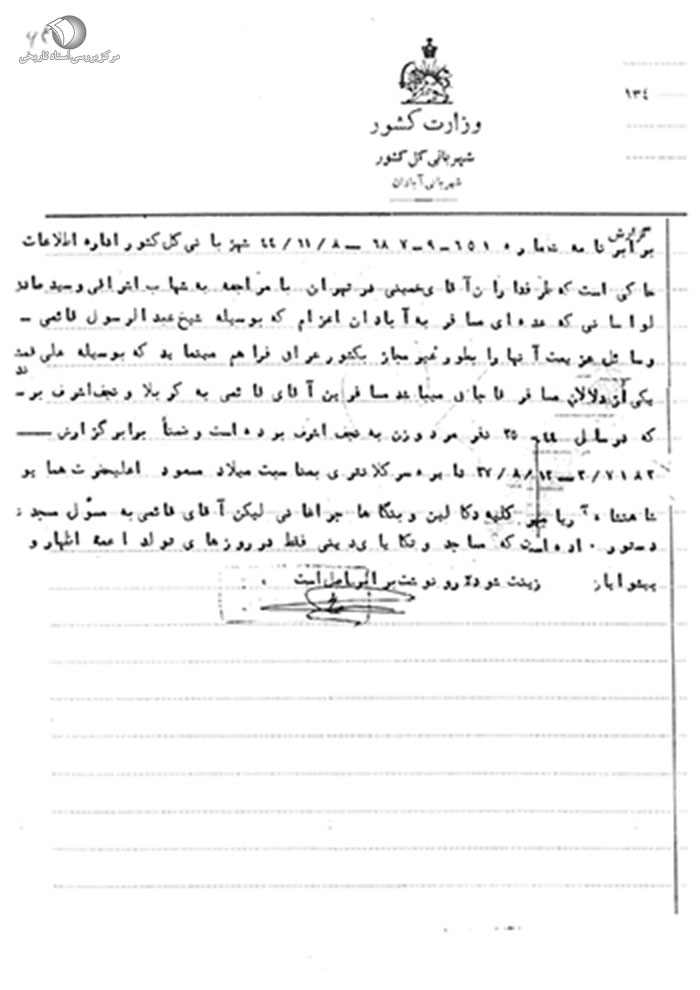 مرکز بررسی اسناد تاریخی
١٣٤
وزارت کشور
شهربانی کل کشور
شهربانی آبادان
گزارش
برابر نامه شماره ٦٥١٠-٩-٦٨٧ – ٤٤/١١/٨ شهربانی کل کشور اداره اطلاعات
حاکی است که طرفداران آقای خمینی در تهران با مراجعه به شهاب اشراقی و سید
لواسانی که عده‌ای مسافر به آبادان اعزام که بوسیله شیخ عبدالرسول قائمی –
وسائل عزیمت آنها را بطور غیر مجاز بکشور عراق فراهم مینماید که بوسیله علی
یکی از دلالان مسافر قاچاق میباشد مسافرین آقای قائمی به کربلا و نجف اشرف
که در سال ٤٤ ٢٥ نفر مرد و زن به نجف اشرف برده است و ضمناً برابر گزارش
٢/٧١٨٢ – ٢٧/٨/١٢ کلانتری بمناسبت میلاد مسعود اعلیحضرت همایو
شاهنشاه آریامهر کلیه دکاکین و بنگاها چراغانی لیکن آقای قائمی به مسئول مسجد
دستور داده است که مساجد و تکایای دینی فقط در روزهای تولد ائمه اطهار و
پیشوایان زینت شود رونوشت برابر اصل است